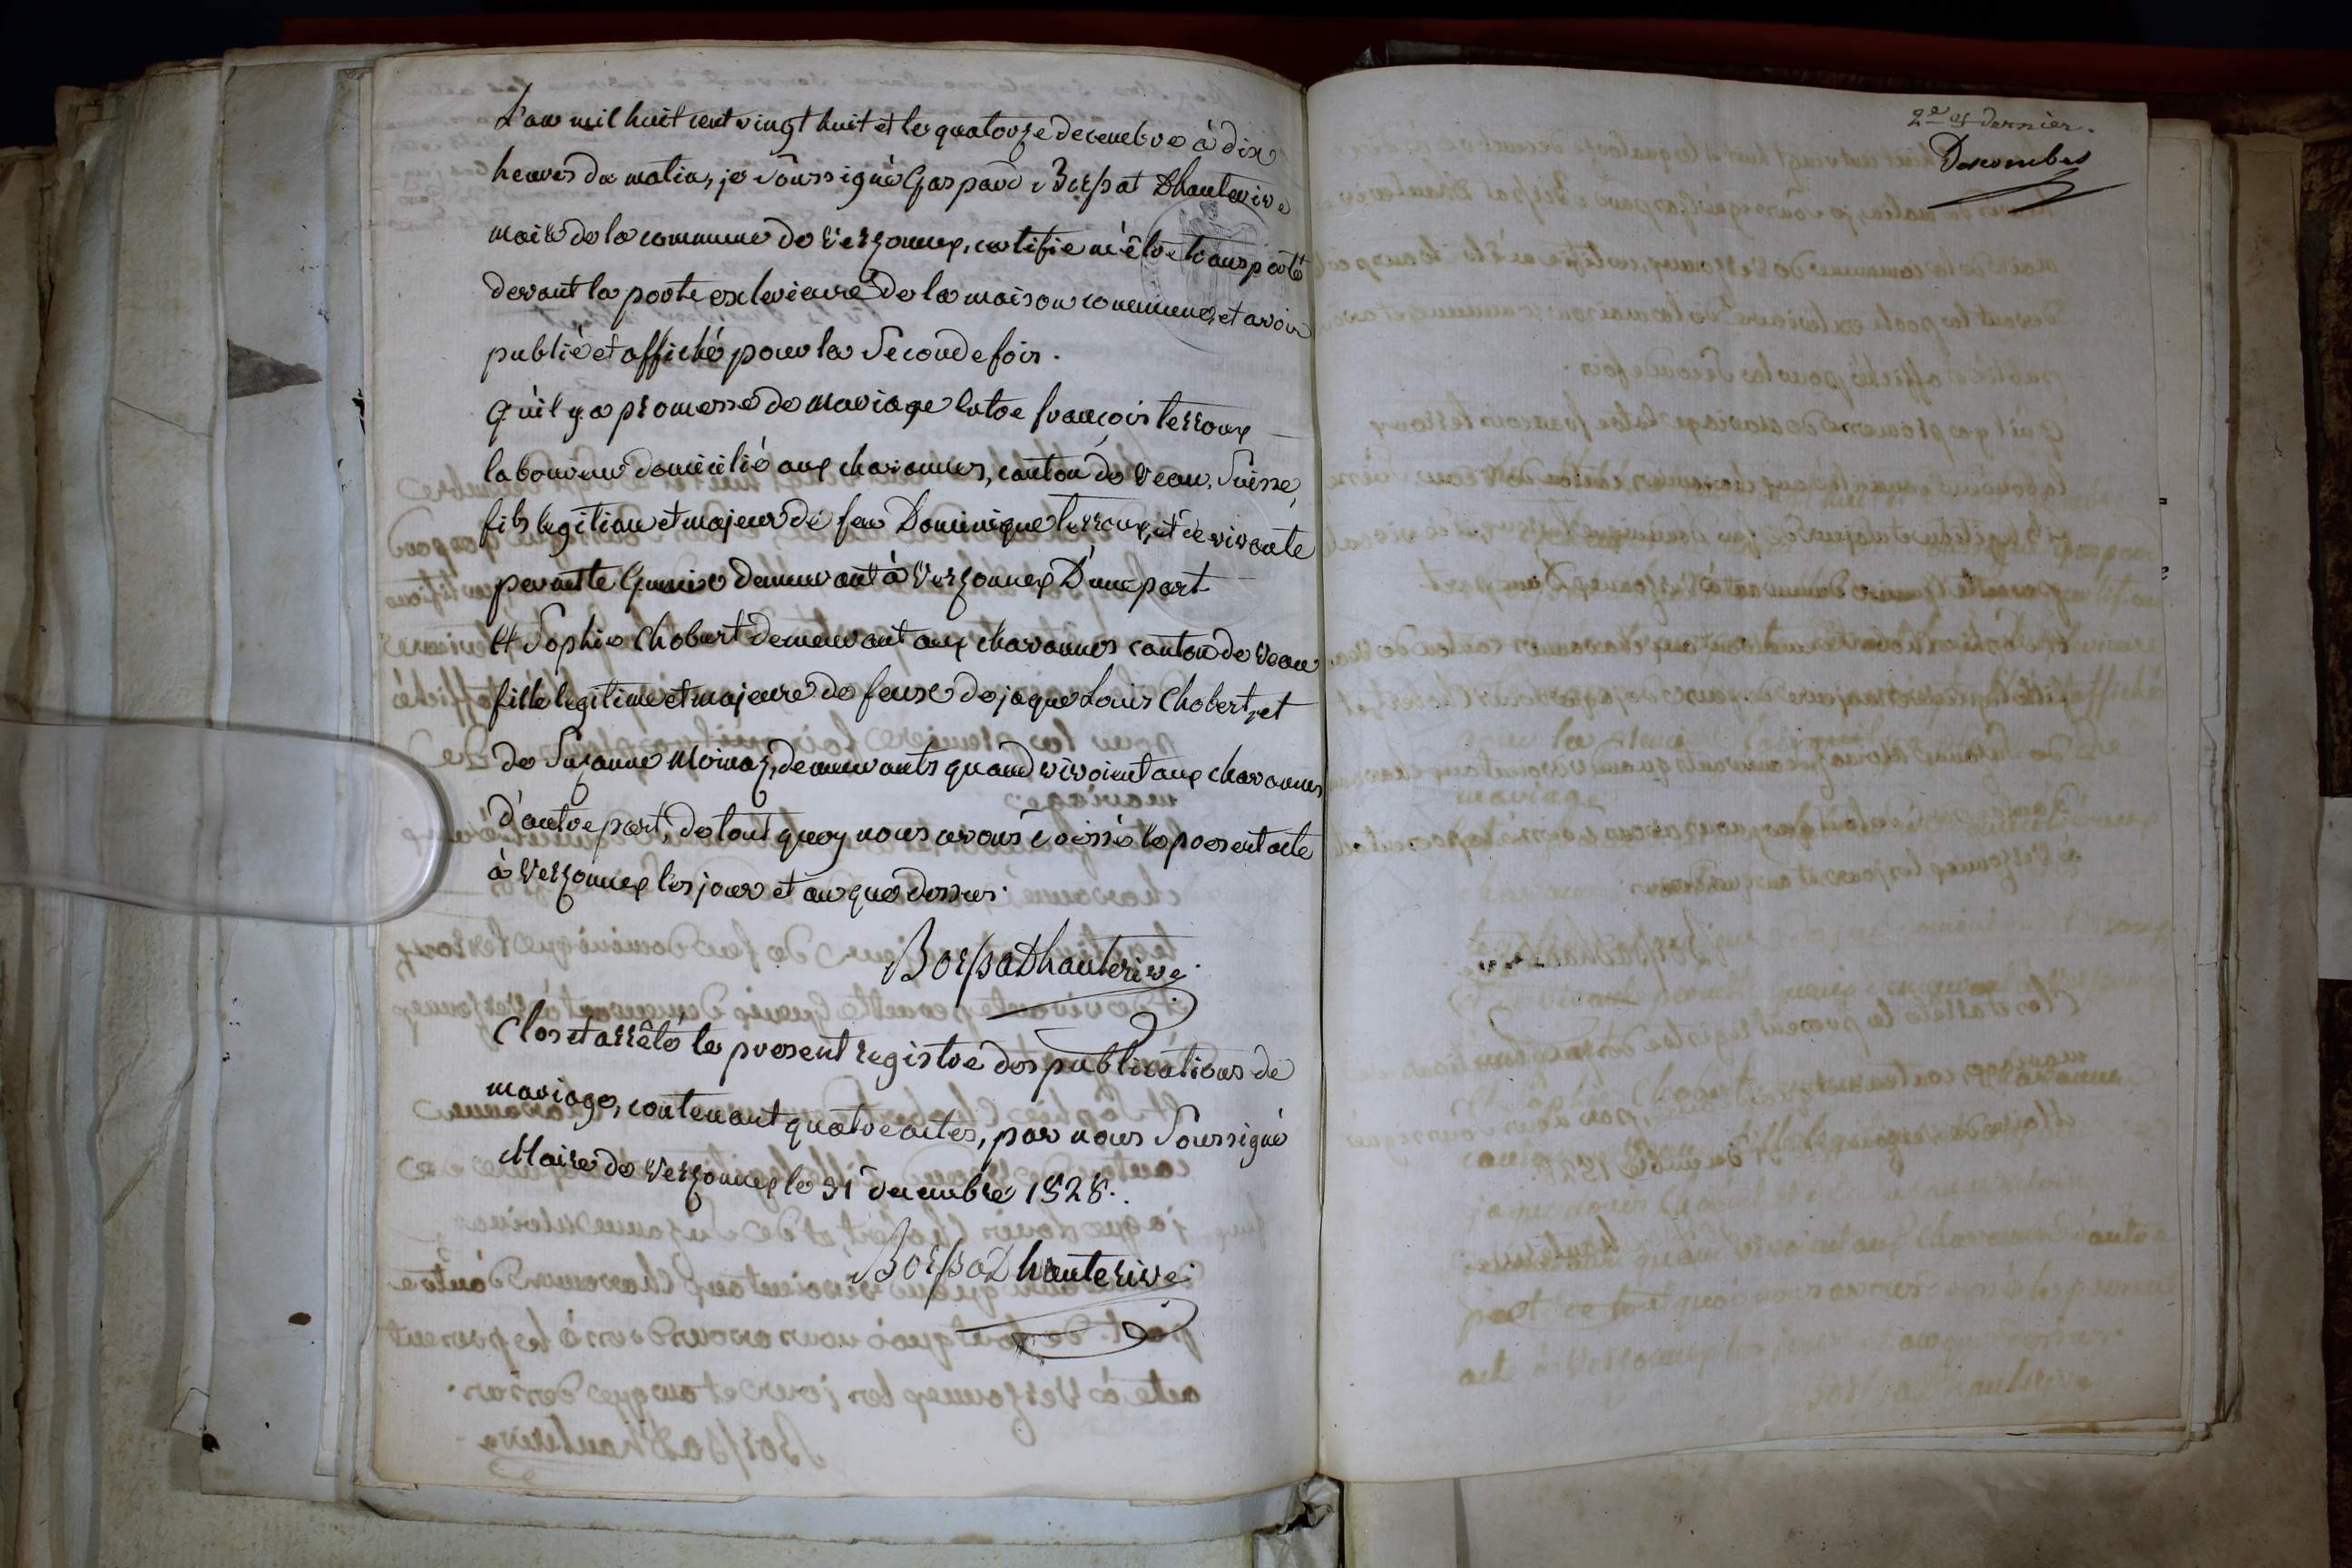 L'an mil huit cent vingt huit et le quatorze decembre à dix
heures du matin, je soussigné Gaspard Borssat Dhauterive
maire de la commune de Versonnex, certifie m'être transporté
devant la porte exterieure de la maison commune, et avoir
publié et affiché pour la Seconde fois.
Qu'il y a promesse de mariage entre françois terroux
laboureur domicilié aux chavannes, canton de Veau, Suisse,
fils legitime et majeur de feu Dominique terroux, et de vivante
pernette demeurant à Versonnex D'une part
Et Sophie Chobert demeurant aux chavannes canton de Veau
fille legitime et majeure de feuse de jaque Louis Chobert, et
de Suzanne Moinaz, demeurants quand vivoient aux chavannes
d'autre part, de tout quoy nous avons dressé le present acte
à Versonnex les jour et an que dessus.
BorssaDhauterive
Clos et arrêté le present registre des publications de
mariage, contenant quatre actes, par nous Soussigné
Maire de Versonnex le 31 decembre 1828.
BorssaDhauterive
2e et dernier.
Descombes